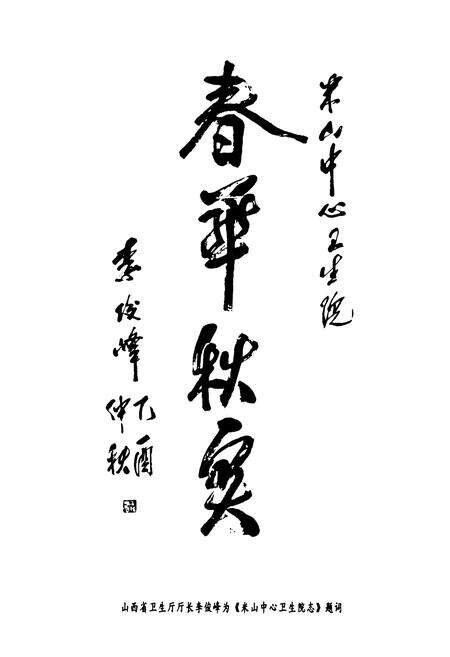 米山中心卫生院
春華秋实
李俊峰
乙酉
仲秋
山西省卫生厅厅长李俊峰为《米山中心卫生院志》题词